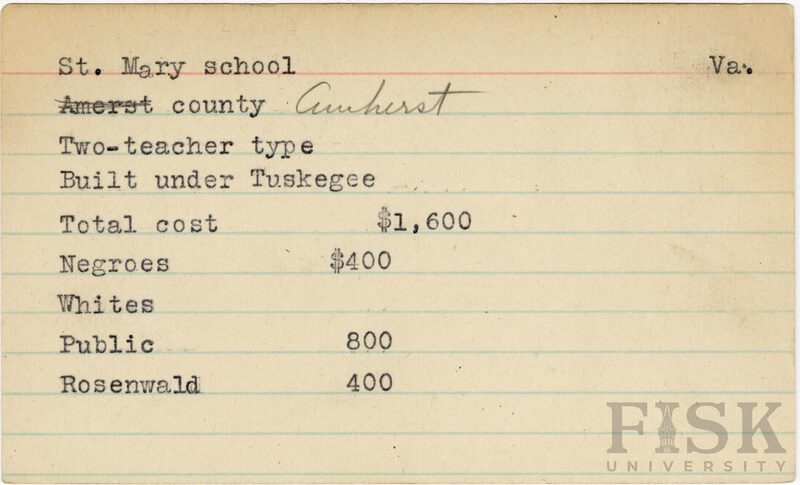 St. Mary school Va.
Amerst county Amherst
Two-teacher type
Built under Tuskegee
Total cost $1,600
Negroes $400
Whites
Public 800
Rosenwald 400
FISK
UNIVERSITY